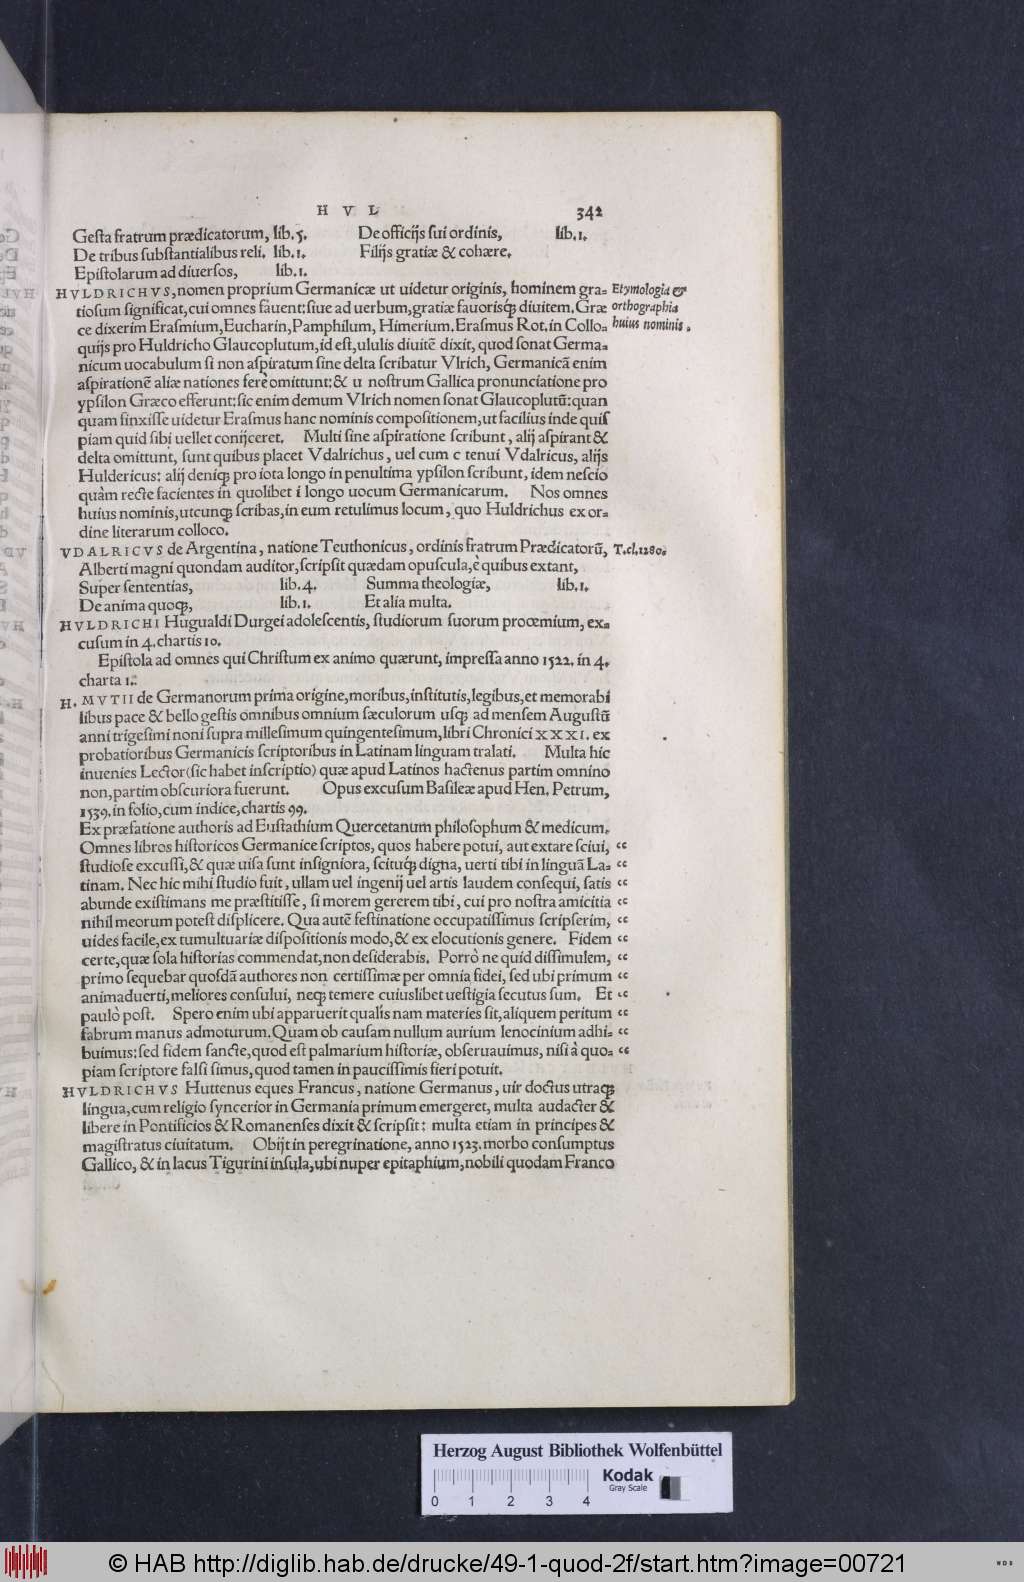 H V L 342
Gesta fratrum prædicatorum, lib. 5. De officijs sui ordinis, lib. 1.
De tribus substantialibus reli. lib. 1. Filijs gratiæ & cohære.
Epistolarum ad diuersos, lib. 1.
HVLDRICHVS, nomen proprium Germanicæ ut uidetur originis, hominem gra= Etymologia &
tiosum significat, cui omnes fauent: siue ad uerbum, gratiæ fauorisq́; diuitem. Græ orthographia
ce dixerim Erasmium, Eucharin, Pamphilum, Himerium. Erasmus Rot. in Collo= huius nominis.
quijs pro Huldricho Glaucoplutum, id est, ululis diuitẽ dixit, quod sonat Germa=
nicum uocabulum si non aspiratum sine delta scribatur Vlrich, Germanicã enim
aspirationẽ aliæ nationes fere omittunt: & u nostrum Gallica pronunciatione pro
ypsilon Græco efferunt: sic enim demum Vlrich nomen sonat Glaucoplutũ: quan
quam finxisse uidetur Erasmus hanc nominis compositionem, ut facilius inde quis
piam quid sibi uellet conijceret. Multi sine aspiratione scribunt, alij aspirant &
delta omittunt, sunt quibus placet Vdalrichus, uel cum c tenui Vdalricus, alijs
Huldericus: alij deniq; pro iota longo in penultima ypsilon scribunt, idem nescio
quàm recte facientes in quolibet i longo uocum Germanicarum. Nos omnes
huius nominis, utcunq; scribas, in eum retulimus locum, quo Huldrichus ex or=
dine literarum colloco.
VDALRICVS de Argentina, natione Teuthonicus, ordinis fratrum Prædicatorũ, T.cl.1280.
Alberti magni quondam auditor, scripsit quædam opuscula, è quibus extant,
Super sententias, lib. 4. Summa theologiæ, lib. 1.
De anima quoq;, lib. 1. Et alia multa.
HVLDRICHI Hugualdi Durgei adolescentis, studiorum suorum prooemium, ex=
cusum in 4. chartis 10.
Epistola ad omnes qui Christum ex animo quærunt, impressa anno 1522. in 4.
charta 1.
H. MVTII de Germanorum prima origine, moribus, institutis, legibus, et memorabi
libus pace & bello gestis omnibus omnium sæculorum usq; ad mensem Augustũ
anni trigesimi noni supra millesimum quingentesimum, libri Chronici XXXI. ex
probatioribus Germanicis scriptoribus in Latinam linguam tralati. Multa hic
inuenies Lector (sic habet inscriptio) quæ apud Latinos hactenus partim omnino
non, partim obscuriora fuerunt. Opus excusum Basileæ apud Hen. Petrum,
1539. in folio, cum indice, chartis 99.
Ex præfatione authoris ad Eustathium Quercetanum philosophum & medicum.
Omnes libros historicos Germanice scriptos, quos habere potui, aut extare sciui, “
studiose excussi, & quæ uisa sunt insigniora, scituq́; digna, uerti tibi in linguã La= “
tinam. Nec hic mihi studio fuit, ullam uel ingenij uel artis laudem consequi, satis “
abunde existimans me præstitisse, si morem gererem tibi, cui pro nostra amicitia “
nihil meorum potest displicere. Qua autẽ festinatione occupatissimus scripserim, “
uides facile, ex tumultuariæ dispositionis modo, & ex elocutionis genere. Fidem “
certe, quæ sola historias commendat, non desiderabis. Porrò ne quid dissimulem, “
primo sequebar quosdã authores non certissimæ per omnia fidei, sed ubi primum “
animaduerti, meliores consului, neq; temere cuiuslibet uestigia secutus sum. Et “
paulò post. Spero enim ubi apparuerit qualis nam materies sit, aliquem peritum “
fabrum manus admoturum. Quam ob causam nullum aurium lenocinium adhi= “
buimus: sed fidem sancte, quod est palmarium historiæ, obseruauimus, nisi à quo= “
piam scriptore falsi simus, quod tamen in paucissimis fieri potuit.
HVLDRICHVS Huttenus eques Francus, natione Germanus, uir doctus utraq;
lingua, cum religio syncerior in Germania primum emergeret, multa audacter &
libere in Pontificios & Romanenses dixit & scripsit: multa etiam in principes &
magistratus ciuitatum. Obijt in peregrinatione, anno 1523. morbo consumptus
Gallico, & in lacus Tigurini insula, ubi nuper epitaphium, nobili quodam Franco
Herzog August Bibliothek Wolfenbüttel
Kodak
Gray Scale
0 1 2 3 4
© HAB http://diglib.hab.de/drucke/49-1-quod-2f/start.htm?image=00721
WDB